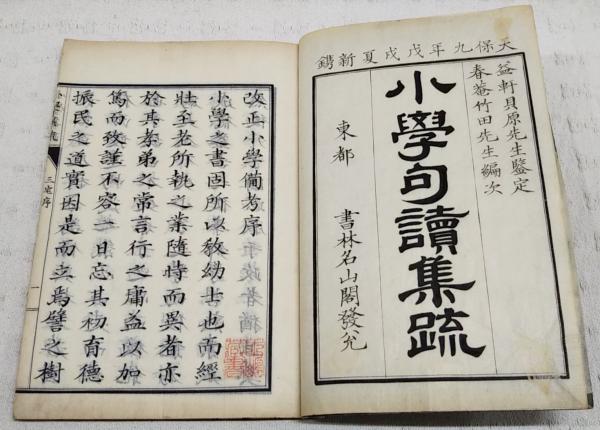 天保九年戊戌夏新鐫
益軒貝原先生鑒定
春菴竹田先生編次
小學句讀集疏
東都 書林名山閣發兌
改正小學備考序
小學之書固所以教幼士也而經
壯至老所執之業隨時而異者亦
於其孝弟之常言行之庸益以加
篤而致謹不容一日忘其初育德
振民之道實因是而立焉譬之樹
三宅序 一